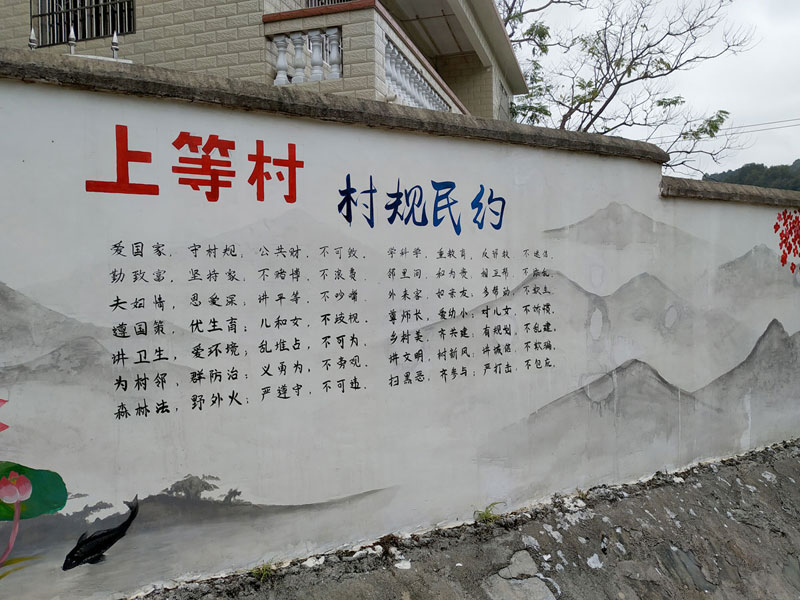 上等村 村规民约
爱国家,守村规,公共财,不可毁,
勤致富,坚持家,不赌博,不浪费,
夫妇情,恩爱深,讲平等,不吵嘴,
遵国策,优生育;儿和女,不歧视,
讲卫生,爱环境;乱堆占,不可为,
为村邻,群防治;义勇为,不旁观,
森林法,野外火;严遵守,不可违,
学科学,重教育,反邪教,不迷信,
邻里间,和为贵,相互帮,
外来客,如亲友,多帮助,不欺生,
尊师长,爱幼小;对儿女,不娇惯,
乡村美,齐共建;有规划,不乱建,
讲文明,村新风,讲诚信,不欺骗,
扫黑恶,齐参与;严打击,不包庇,